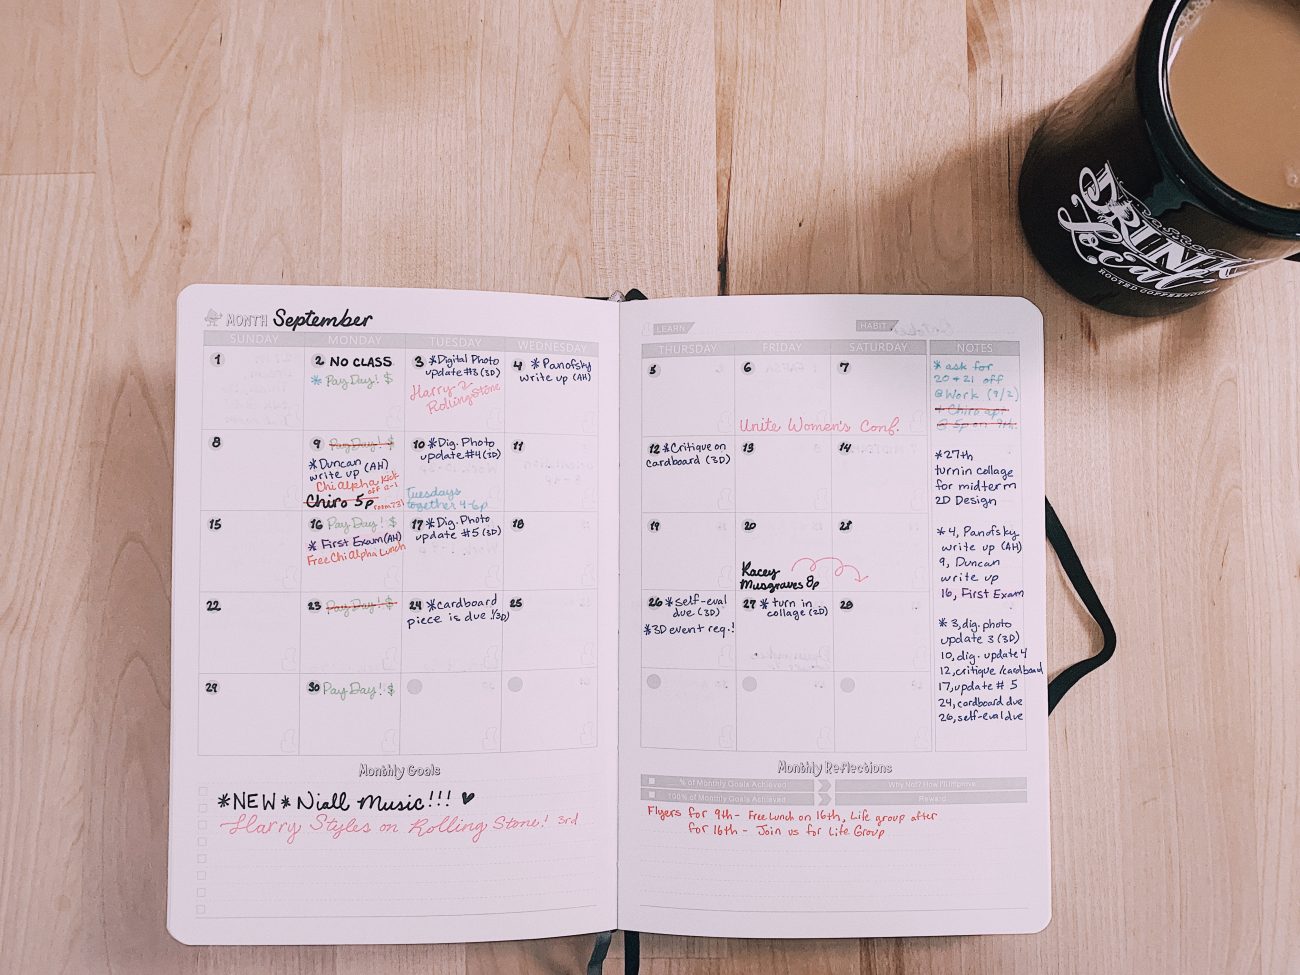 MONTH September
SUNDAY MONDAY TUESDAY WEDNESDAY
1
2 NO CLASS
* Pay Day! $
3 *Digital Photo
update #3 (3D)
Harry 2
Rolling Stone
4 * Panofsky
write up (AH)
8
9 Pay Day! $
*Duncan
write up (AH)
Chi Alpha Kick
off 12-1
Chiro 5p
room 731
10 *Dig. Photo
update #4 (3D)
Tuesdays
together 4-6p
11
15
16 Pay Day! $
* First Exam (AH)
Free Chi Alpha Lunch
17 *Dig. Photo
update #5 (3D)
18
22
23 Pay Day! $
24 *cardboard
piece is due! (3D)
25
29
30 Pay Day! $
Monthly Goals
*NEW* Niall Music!!! ♥
Harry Styles on Rolling Stone! 3rd
LEARN
HABIT
THURSDAY FRIDAY SATURDAY NOTES
5
6
7
Unite Women's Conf.
12 *Critique on
cardboard (3D)
13
14
19
20
Kacey
Musgraves 8p
21
26 *self-eval
due (3D)
*3D event req.!
27 * turn in
collage (2D)
28
* ask for
20 + 21 off
@Work (9/2)
+ Chiro apt
@ 5p on 9th.
*27th
turn in collage
for midterm
2D Design
*4, Panofsky
write up (AH)
9, Duncan
write up
16, First Exam
* 3, dig. photo
update 3 (3D)
10, dig. update 4
12, critique/cardboard
17, update # 5
24, cardboard due
26, self-eval due
Monthly Reflections
% of Monthly Goals Achieved
Why Not? How Pll Improve
100% of Monthly Goals Achieved
Reward
Flyers for 9th - Free Lunch on 16th, Life group after
for 16th - Join us for Life Group
DRINK
Local
ROOTED COFFEEHOUSE